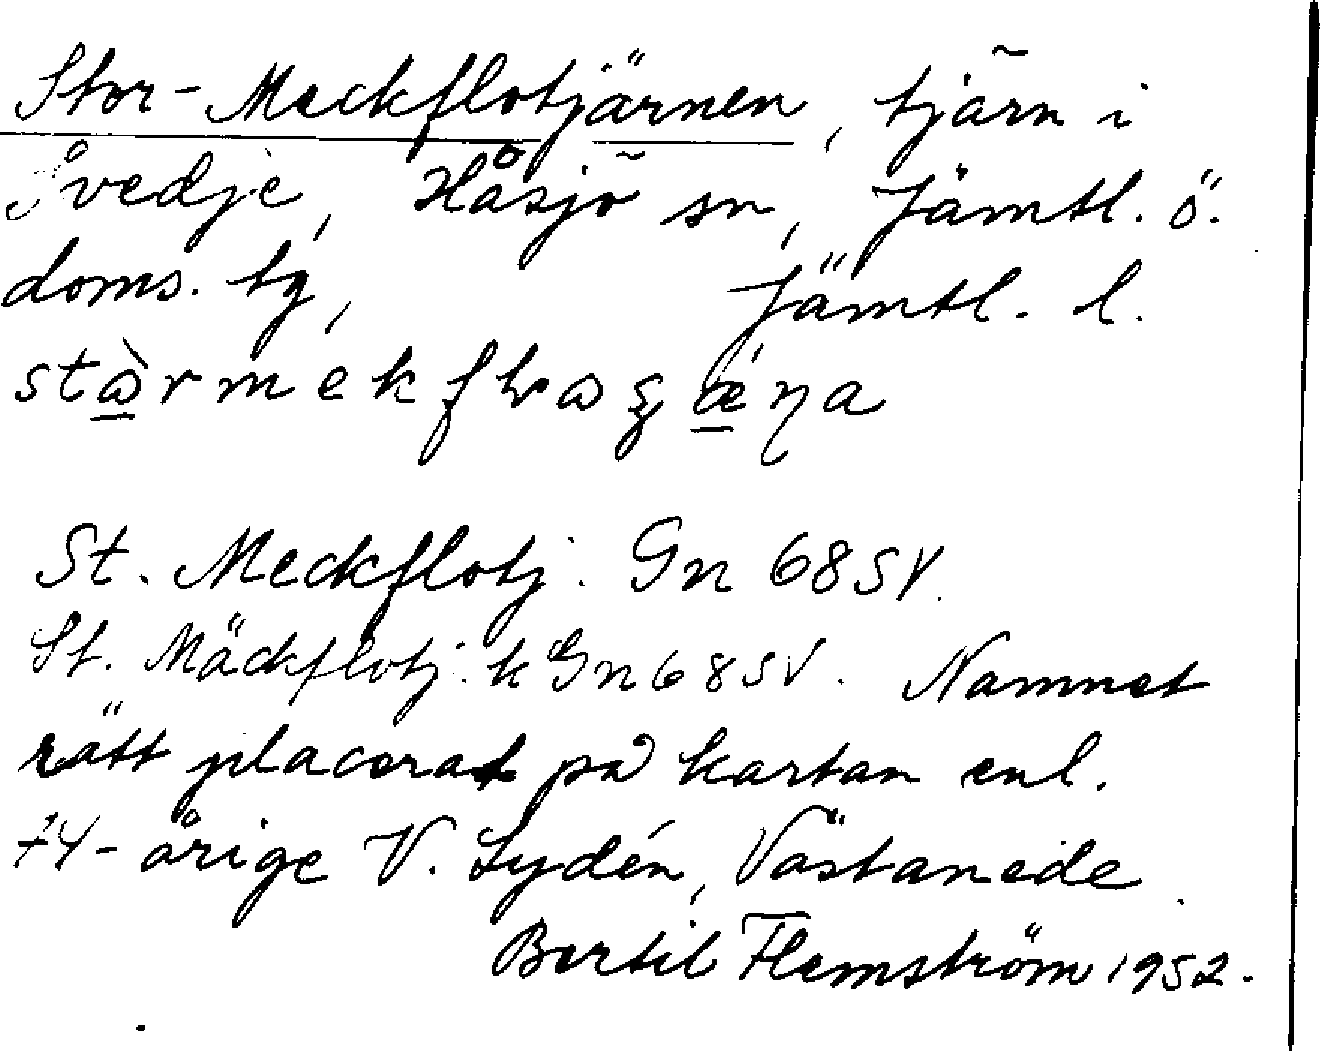 Stor-Meckflotjärnen, tjärn i
Svedje, Håsjö sn, Jämtl. ö.
doms. tg, Jämtl. l.
St. Meckflotj. Gn 68 SV.
St. Mäckflotj. k Gn 68 SV. Namnet
rätt placerat på kartan enl.
74-årige V. Lydén, Västanede
Bertil Flemström 1952.